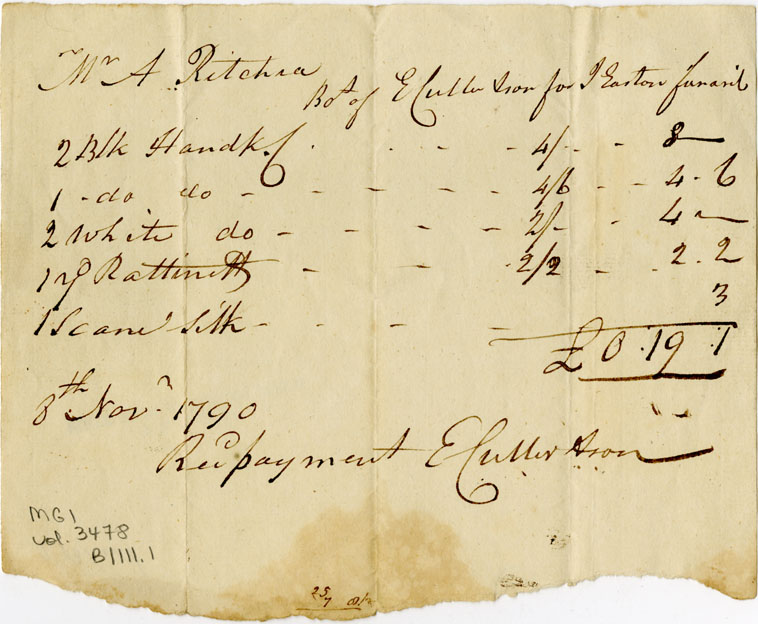 Mr A Ritchra
Bot of E Cullertson for J Easton funaril
2 Blk Handkf - - - 4/- - 8 -
1 - do do - - - - - 4/6 - - 4 - 6
2 White do - - - - - 2/- - 4 -
1 yd Rattinett - - - 2/2 - 2 . 2
1 Scane Silk - - - - 3
£ 0 . 19 . 1
8th Novr 1790
Recd payment E Cullertson
MG1
vol. 3478
B/111.1